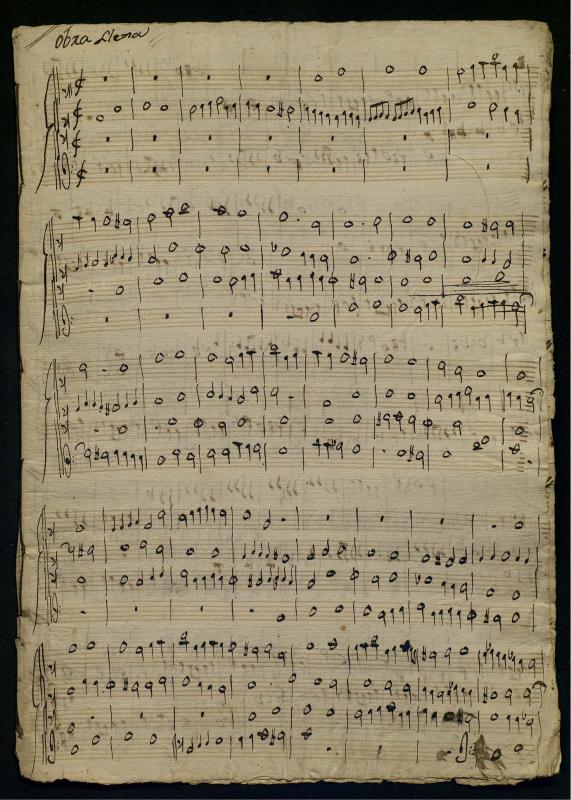 obra llena